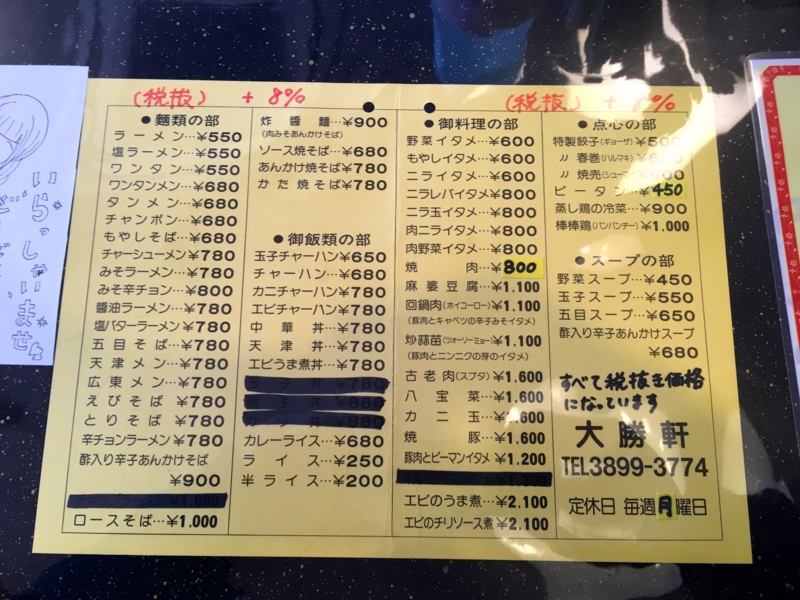 いらっしゃいませ
(税抜) + 8%
●麵類の部
ラーメン…¥550
塩ラーメン…¥550
ワンタン…¥550
ワンタンメン…¥680
タンメン…¥680
チャンポン…¥680
もやしそば…¥680
チャーシューメン¥780
みそラーメン…¥780
みそ辛チョン…¥800
醬油ラーメン…¥780
塩バターラーメン¥780
五目そば…¥780
天津メン…¥780
広東メン…¥780
えびそば…¥780
とりそば…¥780
辛チョンラーメン¥780
酢入り辛子あんかけそば
¥900
ロースそば…¥1,000
炸醬麵…¥900
(肉みそあんかけそば)
ソース焼そば…¥680
あんかけ焼そば¥780
かた焼そば…¥780
●御飯類の部
玉子チャーハン¥650
チャーハン…¥680
カニチャーハン¥780
エビチャーハン¥780
中華丼…¥780
天津丼…¥780
エビうま煮丼…¥780
カレーライス…¥680
ライス…¥250
半ライス…¥200
(税抜) +
●御料理の部
野菜イタメ…¥600
もやしイタメ…¥600
ニライタメ…¥600
ニラレバイタメ¥800
ニラ玉イタメ…¥800
肉ニライタメ…¥800
肉野菜イタメ…¥800
焼肉…¥800
麻婆豆腐…¥1,100
回鍋肉(ホイコーロー)¥1,100
(豚肉とキャベツの辛子みそイタメ)
炒蒜苗(ツォーソーミョー)¥1,100
(豚肉とニンニクの芽のイタメ)
古老肉(スブタ)¥1,600
八宝菜…¥1,600
カニ玉…¥1,600
焼豚…¥1,600
豚肉とピーマンイタメ¥1,200
エビのうま煮…¥2,100
エビのチリソース煮¥2,100
●点心の部
特製餃子(ギョーザ)¥500
〃春巻(ハルマキ)
〃焼売(シューマイ)
ピータン…¥450
蒸し鶏の冷菜…¥900
棒棒鶏(バンバンヂー)¥1,000
●スープの部
野菜スープ…¥450
玉子スープ…¥550
五目スープ…¥650
酢入り辛子あんかけスープ
¥680
すべて税抜き価格
になっています
大勝軒
TEL3899-3774
定休日 毎週月曜日